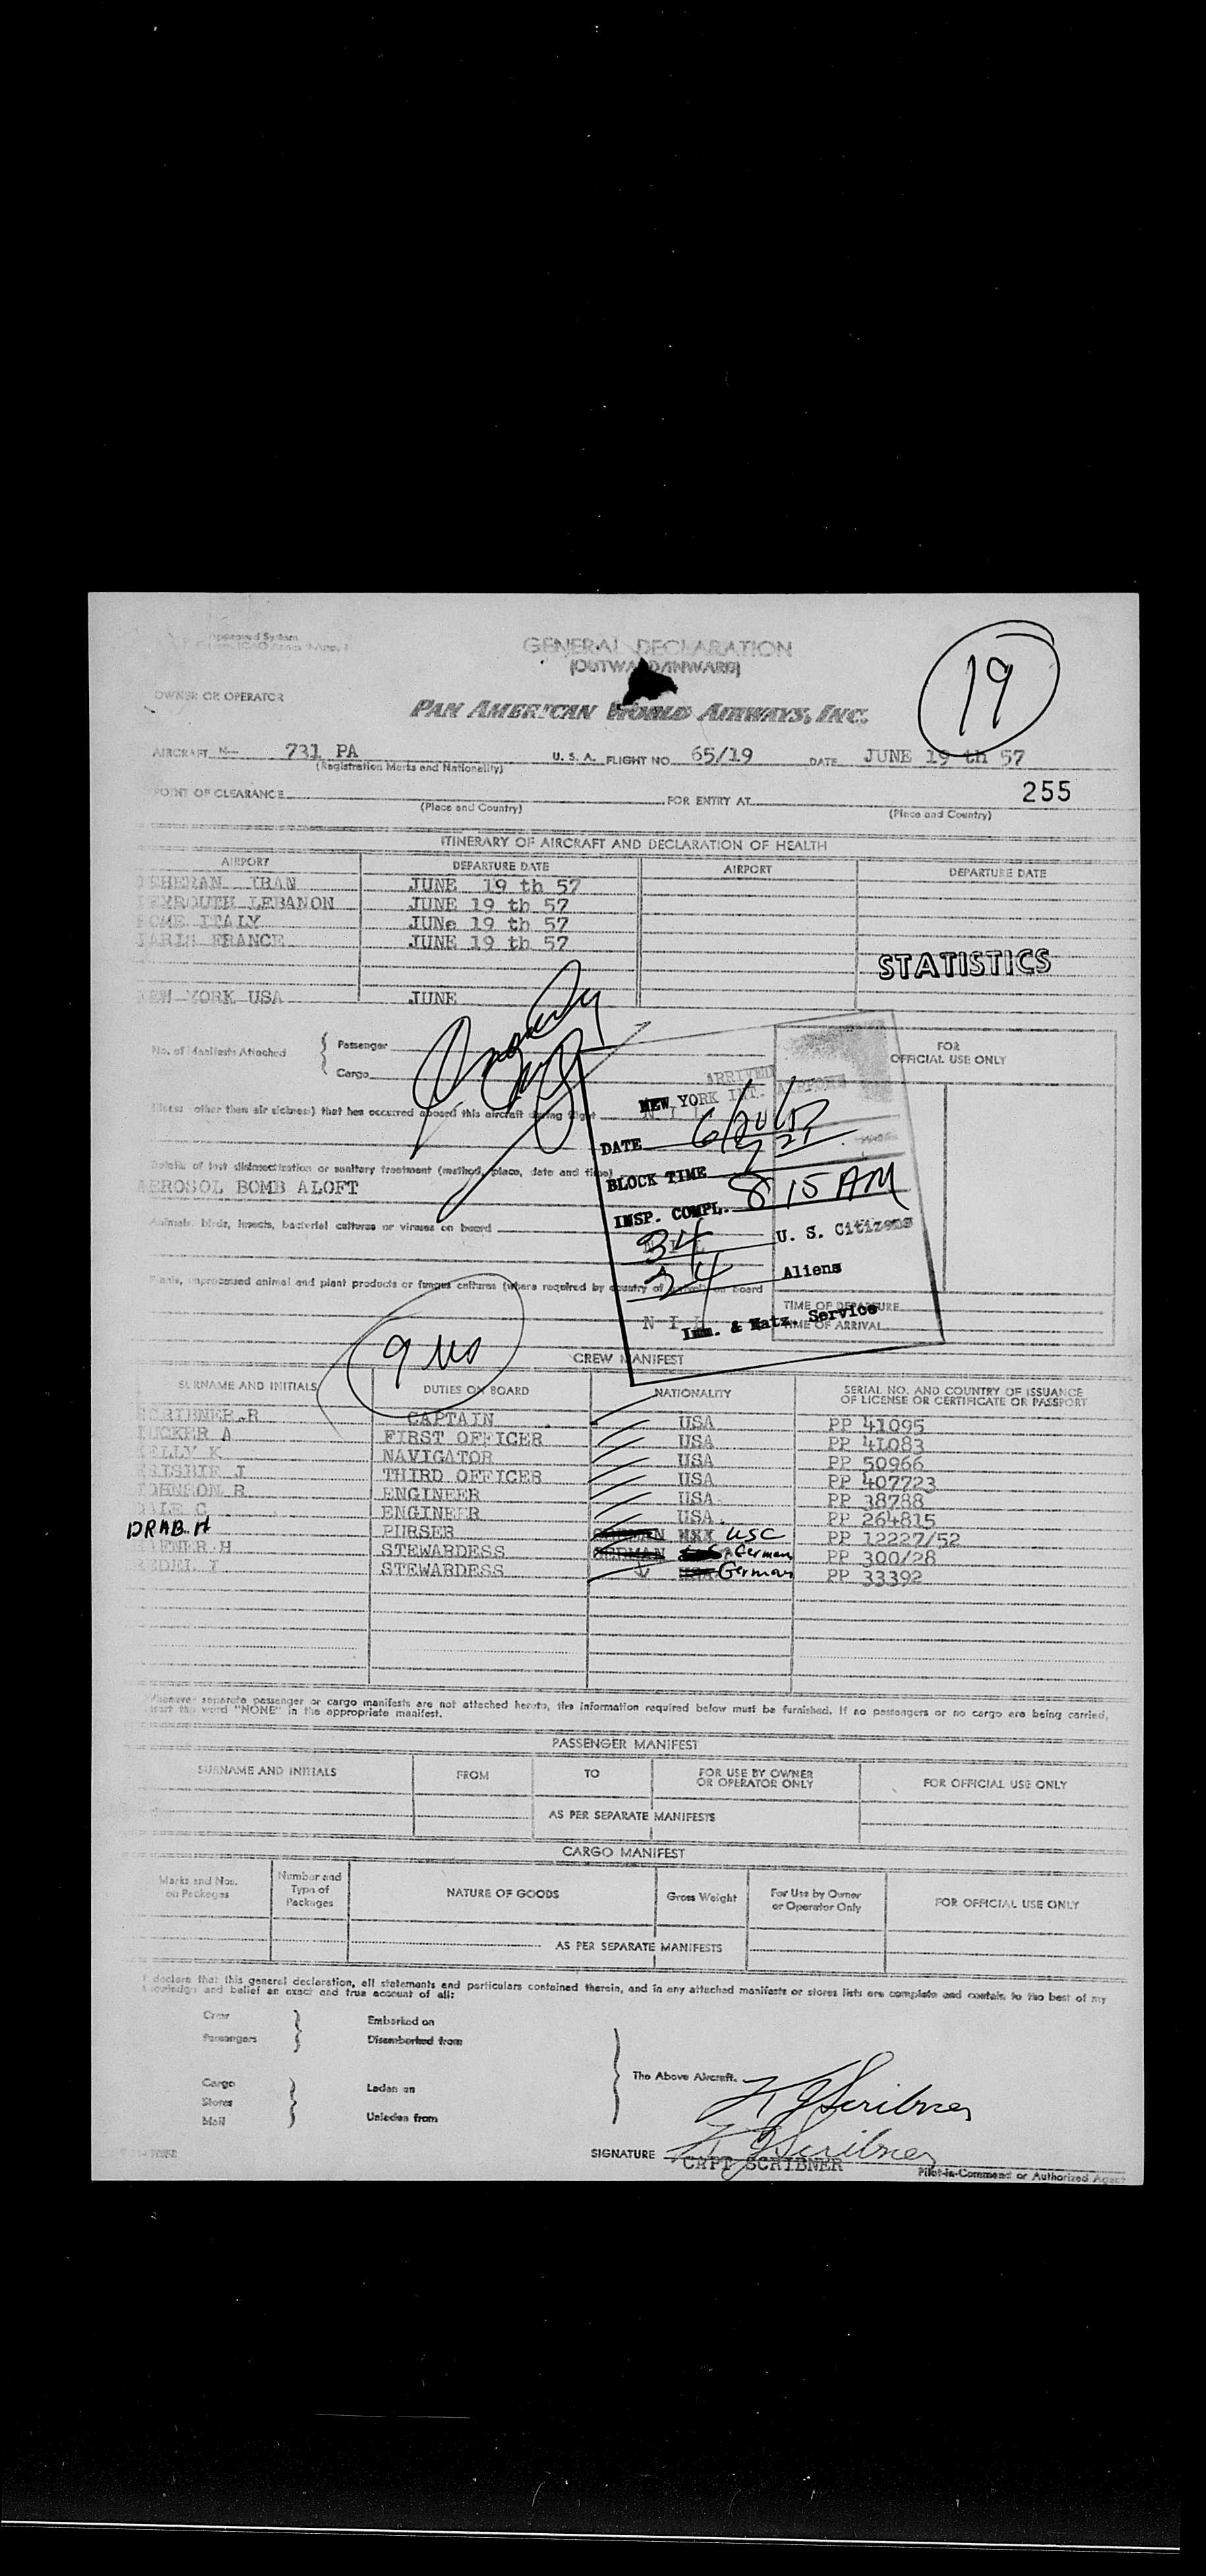 Approved System
GENERAL DECLARATION
(OUTWARD/INWARD)
19
OWNER OR OPERATOR
PAN AMERICAN WORLD AIRWAYS, INC.
AIRCRAFT N— 731 PA U. S. A. FLIGHT NO. 65/19 DATE JUNE 19 th 57
(Registration Marks and Nationality)
POINT OF CLEARANCE FOR ENTRY AT 255
(Place and Country) (Place and Country)
ITINERARY OF AIRCRAFT AND DECLARATION OF HEALTH
AIRPORT DEPARTURE DATE AIRPORT DEPARTURE DATE
TEHERAN IRAN JUNE 19 th 57
BEYROUTH LEBANON JUNE 19 th 57
ROME ITALY JUNe 19 th 57
PARIS FRANCE JUNE 19 th 57
STATISTICS
NEW YORK USA JUNE
No. of Manifests Attached { Passenger
Cargo
FOR
OFFICIAL USE ONLY
ARRIVED
NEW YORK INT. AIRPORT
Illness (other than air sickness) that has occurred aboard this aircraft during flight N I L
DATE 6/20/57
Details of last disinsectization or sanitary treatment (method, place, date and time)
BLOCK TIME
AEROSOL BOMB ALOFT
INSP. COMPL. 8 15 AM
Animals, birds, insects, bacterial cultures or viruses on board
34 U. S. Citizens
34 Aliens
Plants, unprocessed animal and plant products or fungus cultures (where required by country of arrival) on board
TIME OF DEPARTURE
N I L
Imm. & Natz. Service
TIME OF ARRIVAL
9
CREW MANIFEST
SURNAME AND INITIALS DUTIES ON BOARD NATIONALITY SERIAL NO. AND COUNTRY OF ISSUANCE
OF LICENSE OR CERTIFICATE OR PASSPORT
SCRIBNER.R CAPTAIN USA PP 41095
TUCKER A FIRST OFFICER USA PP 41083
KELLY K NAVIGATOR USA PP 50966
FRISBIE J THIRD OFFICER USA PP 407723
JOHNSON R ENGINEER USA PP 38788
DALE C ENGINEER USA PP 264815
DRAB.H PURSER USC PP 12227/52
H STEWARDESS German PP 300/28
I STEWARDESS German PP 33392
Whenever separate passenger or cargo manifests are not attached hereto, the information required below must be furnished. If no passengers or no cargo are being carried,
insert the word "NONE" in the appropriate manifest.
PASSENGER MANIFEST
SURNAME AND INITIALS FROM TO FOR USE BY OWNER
OR OPERATOR ONLY FOR OFFICIAL USE ONLY
AS PER SEPARATE MANIFESTS
CARGO MANIFEST
Marks and Nos.
on Packages Number and
Type of
Packages NATURE OF GOODS Gross Weight For Use by Owner
or Operator Only FOR OFFICIAL USE ONLY
AS PER SEPARATE MANIFESTS
I declare that this general declaration, all statements and particulars contained therein, and in any attached manifests or stores lists are complete and contain to the best of my
knowledge and belief an exact and true account of all:
Crew Embarked on
Passengers Disembarked from
The Above Aircraft.
Cargo Laden on
Stores
Mail Unladen from
Scribner
SIGNATURE Scribner
CAPT SCRIBNER
Pilot-in-Command or Authorized Agent